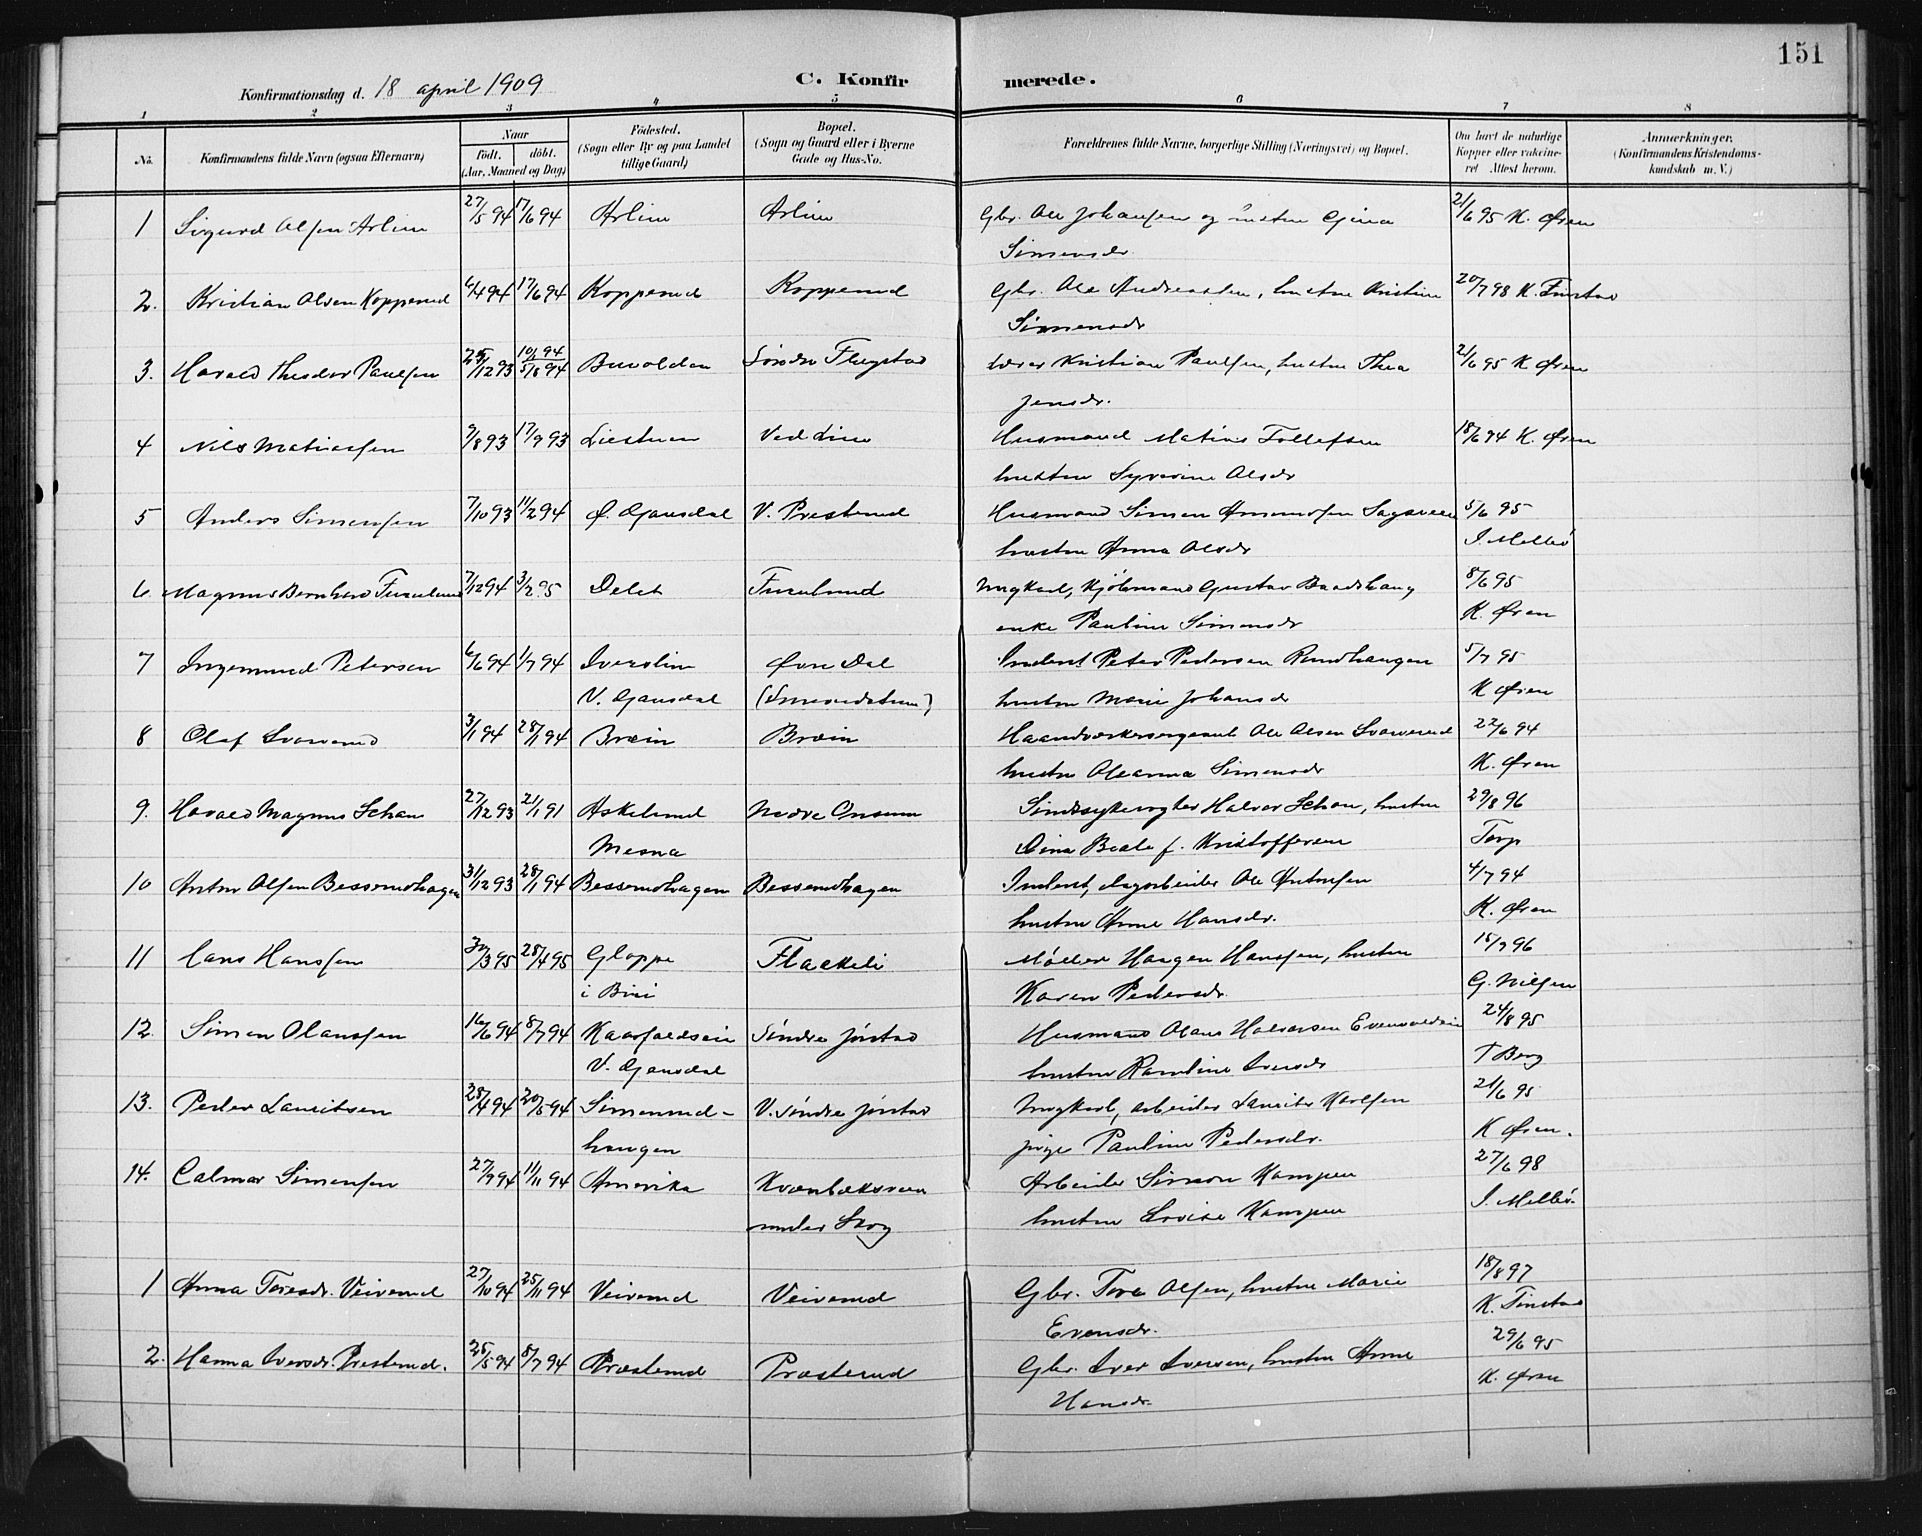 151
Konfirmationsdag d. 18 april 1909
C. Konfirmerede.
1 2 3 4 5 6 7 8
No.
Konfirmandens fulde Navn (ogsaa Efternavn)
Naar
født. døbt.
(Aar, Maaned og Dag)
Fødested.
(Sogn eller By og paa Landet
tillige Gaard)
Bopæl.
(Sogn og Gaard eller i Byerne
Gade og Hus-No.
Forældrenes fulde Navne, borgerlige Stilling (Næringsvei) og Bopæl.
Om havt de naturlige
Kopper eller vakcine-
ret Attest herom.
Anmærkninger.
(Konfirmandens Kristendoms-
kundskab m. V.)
1 Sigurd Olsen 27/5 94 17/6 94 Gbr. Ole Johansen og hustru Gina 21/6 95 K. Øren
Simensdr.
2. Kristian Olsen Kopperud 6/4 94 17/6 94 Kopperud Kopperud Gbr. Ole Andreassen, hustru Kristine 20/7 98 K. Finstad
Simensdr
3. Harald Theodor Paulsen 12 93 10/1 94 5/8 94 Søndre Flugstad Kristian Paulsen, hustru Thea 21/6 95 K Øren
Jensdr.
4 Nils Matiassen 9/8 93 17/9 93 Liestuen Ved Lien Husmand Matias Tollefsen 18/6 94 K. Øren
hustru Syverine Olsdr
5 Anders Simensen 7/10 93 11/2 94 Ø. Gausdal V. Presterud Husmand Simen 5/6 95
hustru Anna Olsdr J. Mellbø
6 Magnus Bernhard Furulund 7/12 94 3/2 95 Furulund Ungkarl, Kjøbmand Gustav 8/6 95
enke Pauline Simensdr K. Øren
7 Ingemund Petersen 6/6 94 1/7 94 Iverslien Øvre Dal Inderst Peter Pedersen 5/7 95
V. Gausdal hustru Marie Johansdr K Øren
8 Olaf Svarverud 3/1 94 28/1 94 Bræin Bræin Ole Olsen Svarverud 22/6 94
hustru Oleanna Simensdr K. Øren
9. Harald Magnus Schou 27/12 93 21/1 91 Askelund Nedre Onsum Sindssygevogter Halvor Schou, hustru 29/8 96
Mesna Dina f. Kristoffersen Torp
10 Anton Olsen Besserudhagen 31/12 93 28/1 94 Besserudhagen Besserudhagen Inderst, dagarbeider Ole Antonsen 4/7 94
hustru Anne Hansdr. K. Øren
11 Hans Hansen 3 95 28/4 95 Gloppe Flakkeli Møller Haagen Hansen, hustru 15/7 96
i Biri Karen Pedersdr. G. Nilsen
12. Simen Olaussen 16/6 94 8/7 94 Søndre Jørstad Husmand Olaus Halvorsen 24/8 95
V. Gausdal hustru Karoline Iversdr T Berg
13. Peder Lauritsen 28/4 94 20/5 94 Simenrud- V. Søndre Jørstad Ungkarl, arbeider Laurits Karlsen 21/6 95
haugen pige Pauline Pedersdr. K Øren.
14. Calmar Simensen 27/9 94 11/11 94 Amerika Kvænbæksveen Arbeider Simon Kampen 27/6 98
under Skog hustru Lovise Kampen J. Mellbø.
1 Anna Toresdr. Veiverud 27/10 94 25/11 94 Veiverud Veiverud Gbr. Tore Olsen, hustru Marie 18/8 97
Evensdr. K. Finstad
2. Hanna Iversdr. Presterud. 25/5 94 8/7 94 Præsterud Præsterud Gbr. Iver Iversen, hustru Anne 29/6 95
Hansdr. K. Øren